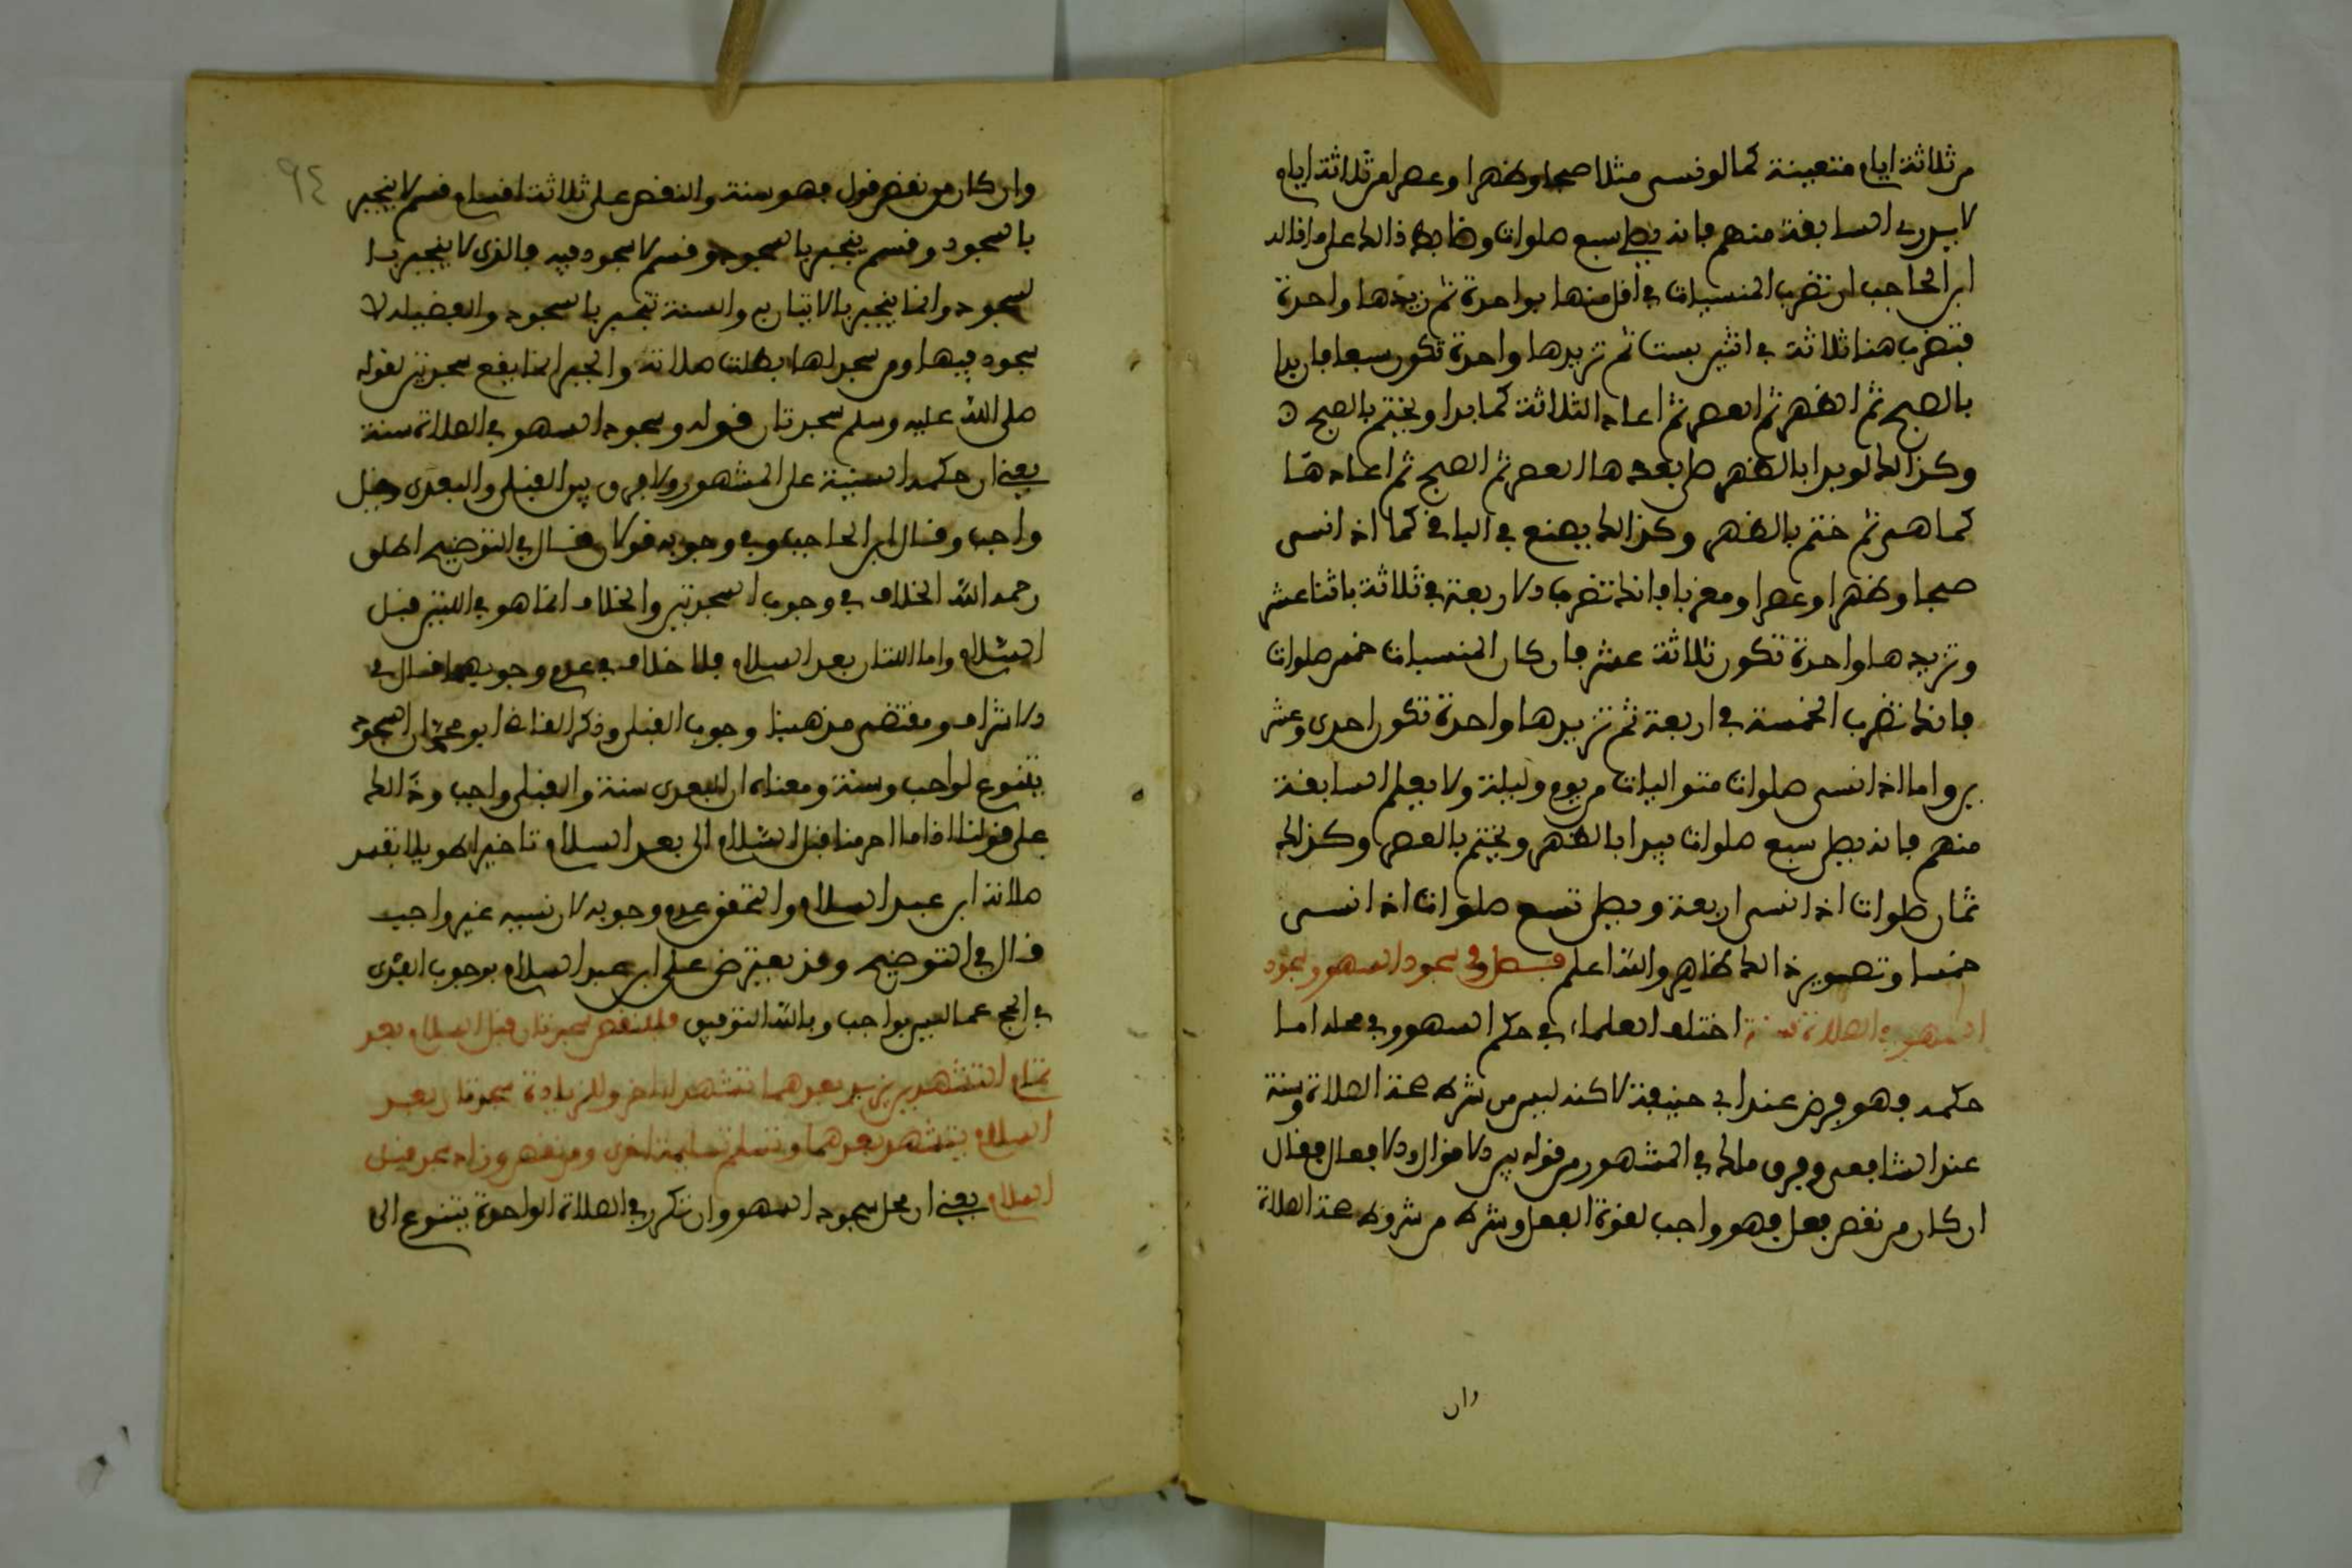 من ثلاثة ايام متعينة كما لو نسى مثلا صبحا وظهرا وعصرا من ثلاثة ايام
لا يدرى السابقة منهم فانه يصلى سبع صلوات وضابط ذالك على ما قاله
ابن الحاجب ان تضرب المنسيات في اقل منها بواحدة ثم تزيدها واحدة
فتضرب هنا ثلاثة في اثنين بستة ثم تزيدها واحدة تكون سبعا فان بدا
بالصبح ثم الظهر ثم العصر ثم اعاد الثلاثة كما بدا ويختم بالصبح
وكذالك لو بدا بالظهر صلى بعدها العصر ثم الصبح ثم اعادها
كما هى ثم ختم بالظهر وكذالك يصنع في الباقي كما اذا نسى
صبحا وظهرا وعصرا ومغربا فانك تضرب الاربعة في ثلاثة باثنا عشر
وتزيدها واحدة تكون ثلاثة عشر فان كان المنسيات خمس صلوات
فانك تضرب الخمسة في اربعة ثم تزيدها واحدة تكون احدى وعشر
ين واما اذا نسى صلوات متواليات من يوم وليلة ولا يعلم السابقة
منهم فانه يصلى سبع صلوات يبدا بالظهر ويختم بالعصر وكذالك
ثمان صلوات اذا نسى اربعة ويصلى تسع صلوات اذا نسى
خمسا وتصوير ذالك ظاهر والله اعلم فصل في سجود السهو وسجود
السهو في الصلاة سنة اختلف العلماء في حكم السهو وفي محله اما
حكمه فهو فرض عند ابي حنيفة لاكنه ليس من شرط صحة الصلاة وسنة
عند الشافعى وفرق مالك في المشهور من قوله بين الاقوال والافعال فقال
ان كان من نقص فعل فهو واجب لقوة الفعل وشرط من شروط صحة الصلاة
وان
٩٤
وان كان من نقص قول فهو سنة والنقص على ثلاثة اقسام قسم لا ينجبر
بالسجود وقسم ينجبر بالسجود وقسم لا سجود فيه فالذى لا ينجبر با
لسجود وانما ينجبر بالاتيان به والسنة تنجبر بالسجود والفضيلة لا
سجود فيها ومن سجد لها بطلت صلاته والجبر انما يقع سجدتين لقوله
صلى الله عليه وسلم سجدتان قوله وسجود السهو في الصلاة سنة
يعني ان حكمه السنية على المشهور ولا فرق بين القبلى والبعدى وقيل
واجب وقال ابن الحاجب وفي وجوبه قولان قال في التوضيح اطلق
رحمه الله الخلاف في وجوب السجدتين والخلاف انما هو في اللتين قبل
السلام واما اللتان بعد السلام فلا خلاف في عدم وجوبهما قال في
الاشراف ومقتضى مذهبنا وجوب القبلى وذكر القاضي ابو محمد ان السجود
يتنوع لواجب وسنة ومعناه ان البعدى سنة والقبلى واجب وذالك
على قولنا اذا ما اخرنا قبل السلام الى بعد السلام تاخيرا طويلا تفسد
صلاته ابن عبد السلام والتحقق عدم وجوبه لان نسبه غير واجب
قال في التوضيح وقد يعترض على ابن عبد السلام بوجوب الهدى
في الحج عما ليس بواجب وبالله التوفيق فللنقص سجدتان قبل السلام بعد
تمام التشهدين يزيد بعدهما تشهدا اخر وللزيادة سجدتان بعد
السلام يتشهد بعدهما ويسلم تسليمة اخرى ومن نقص وزاد سجد قبل
السلام يعني ان محل سجود السهو وان تكرر في الصلاة الواحدة يتنوع الى